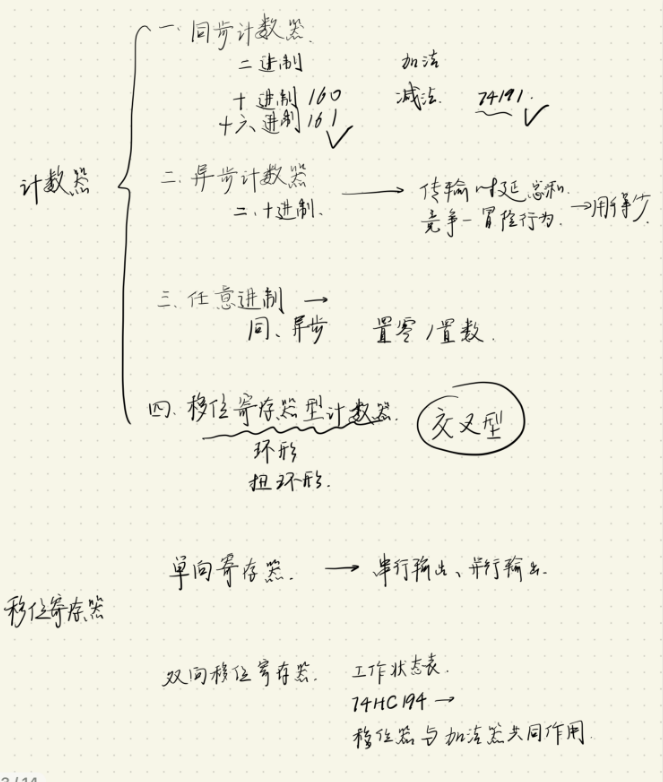 一. 同步计数器.
二进制 加法
十进制 160 减法. 74191.
十六进制 161
计数器
二. 异步计数器 → 传输时延总和.
二.十进制. 竞争-冒险行为. →用得少
三. 任意进制 →
同、异步 置零/置数.
四. 移位寄存器型计数器. 交叉型
环形
扭环形.
单向寄存器. → 串行输出、并行输出.
移位寄存器
双向移位寄存器. 工作状态表.
74HC194 →
移位器与加法器共同作用.